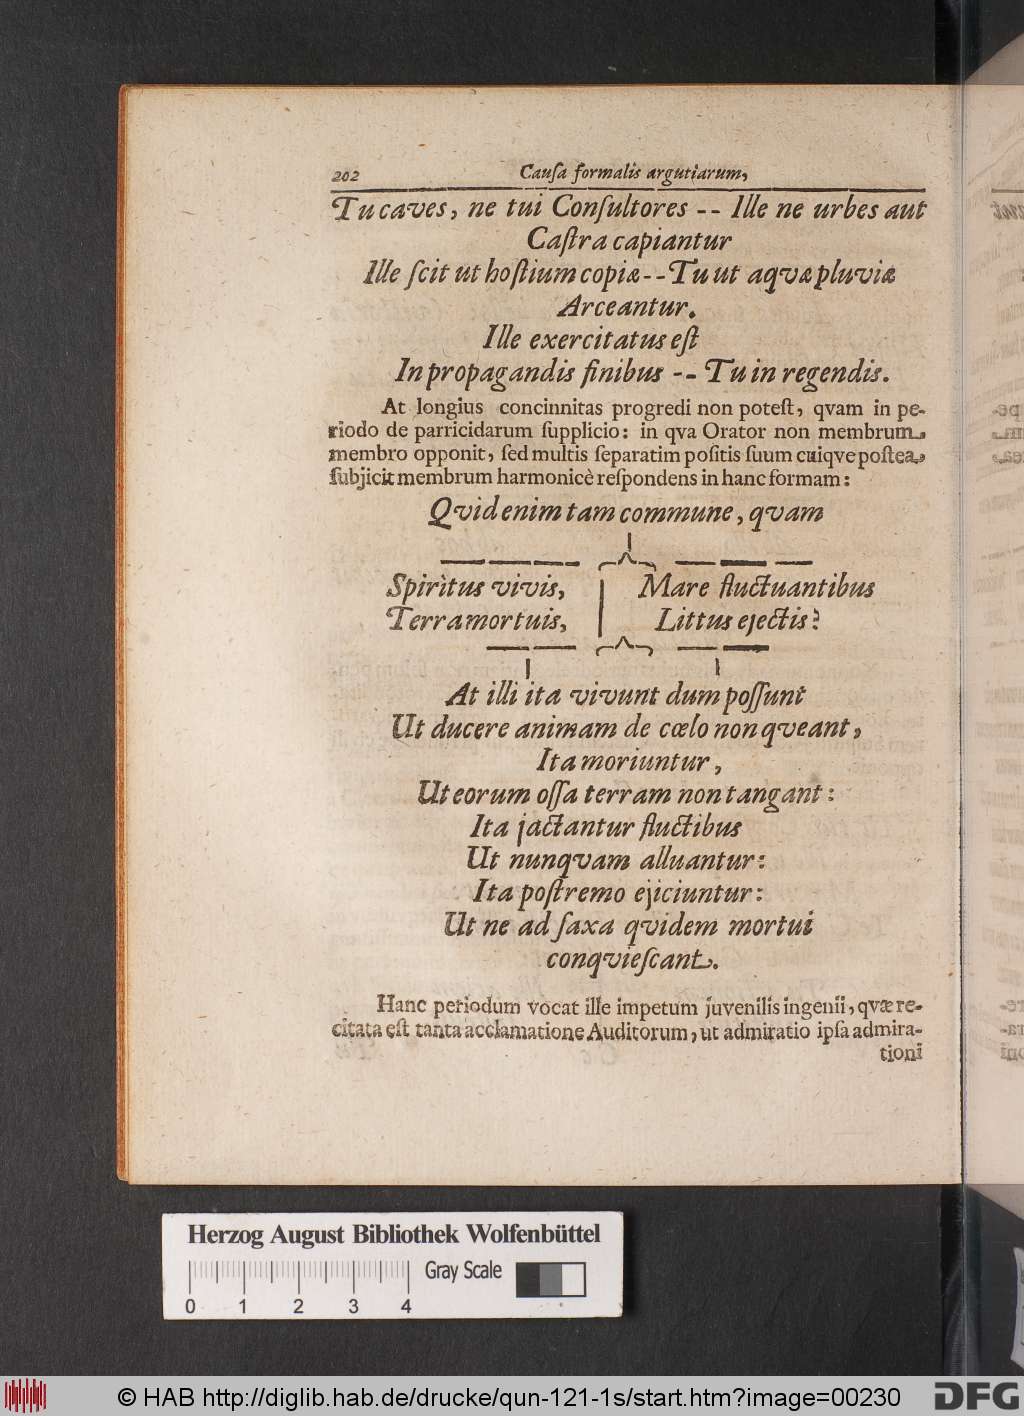 202 Cauſa formalis argutiarum,
Tu caves, ne tui Conſultores -- Ille ne urbes aut
Caſtra capiantur
Ille ſcit ut hoſtium copiæ -- Tu ut aqvæ pluviæ
Arceantur.
Ille exercitatus eſt
In propagandis finibus -- Tu in regendis.
At longius concinnitas progredi non poteſt, qvam in pe-
riodo de parricidarum ſupplicio: in qva Orator non membrum
membro opponit, ſed multis ſeparatim poſitis ſuum cuiqve poſtea
ſubjicit membrum harmonicè reſpondens in hanc formam:
Qvid enim tam commune, qvam
Spiritus vivis, Mare fluctuantibus
Terra mortuis, Littus ejectis?
At illi ita vivunt dum poſſunt
Ut ducere animam de cœlo non qveant,
Ita moriuntur,
Ut eorum oſſa terram non tangant:
Ita jactantur fluctibus
Ut nunqvam alluantur:
Ita poſtremo ejiciuntur:
Ut ne ad ſaxa qvidem mortui
conqvieſcant.
Hanc periodum vocat ille impetum juvenilis ingenii, qvæ re-
citata eſt tanta acclamatione Auditorum, ut admiratio ipſa admira-
tioni
Herzog August Bibliothek Wolfenbüttel
Gray Scale
0 1 2 3 4
© HAB http://diglib.hab.de/drucke/qun-121-1s/start.htm?image=00230
DFG